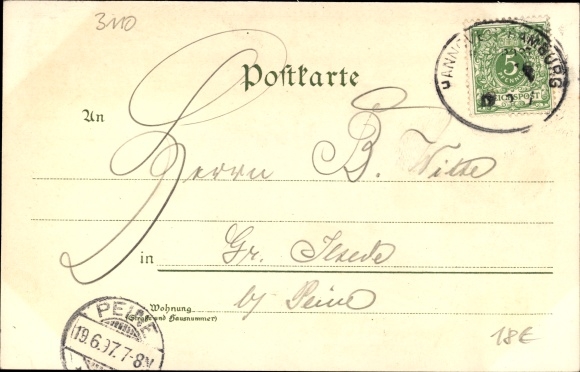 3110
HANNOVER HAMBURG
5
PFENNIG
REICHSPOST
Postkarte
An
Herrn B. Witte
in Gr. Ilsede
by Peine
Wohnung
(Straße und Hausnummer)
PEINE
19.6.97.7-8N
18€